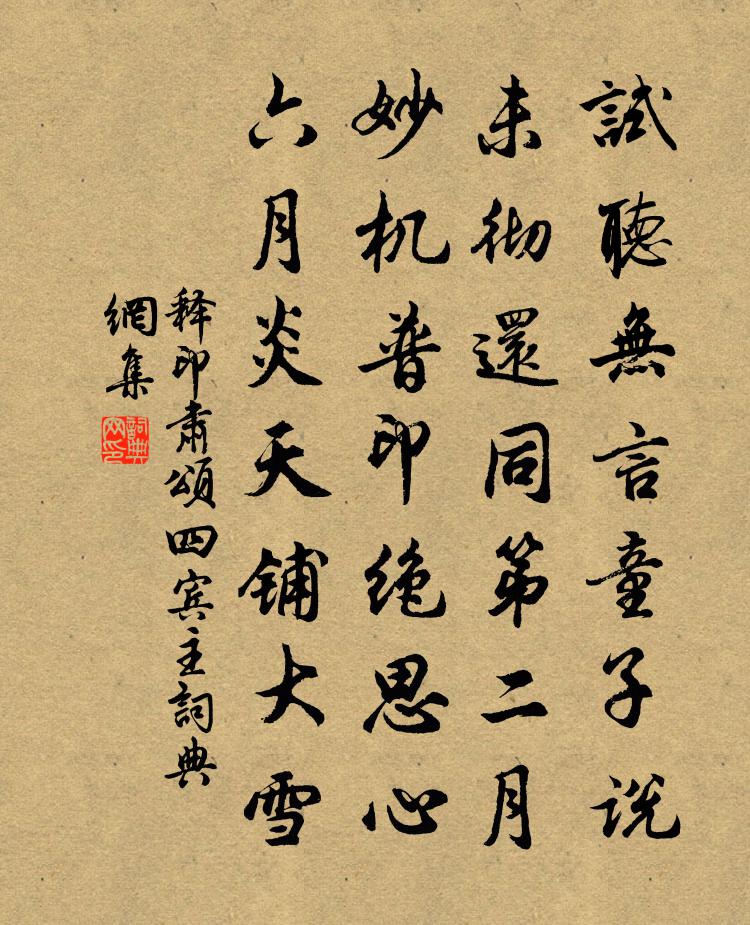 試聽無言童子说
未彻還同第二月
妙机普印绝思心
六月炎天铺大雪
释印肃頌四宾主詞典
網集
詞典网印